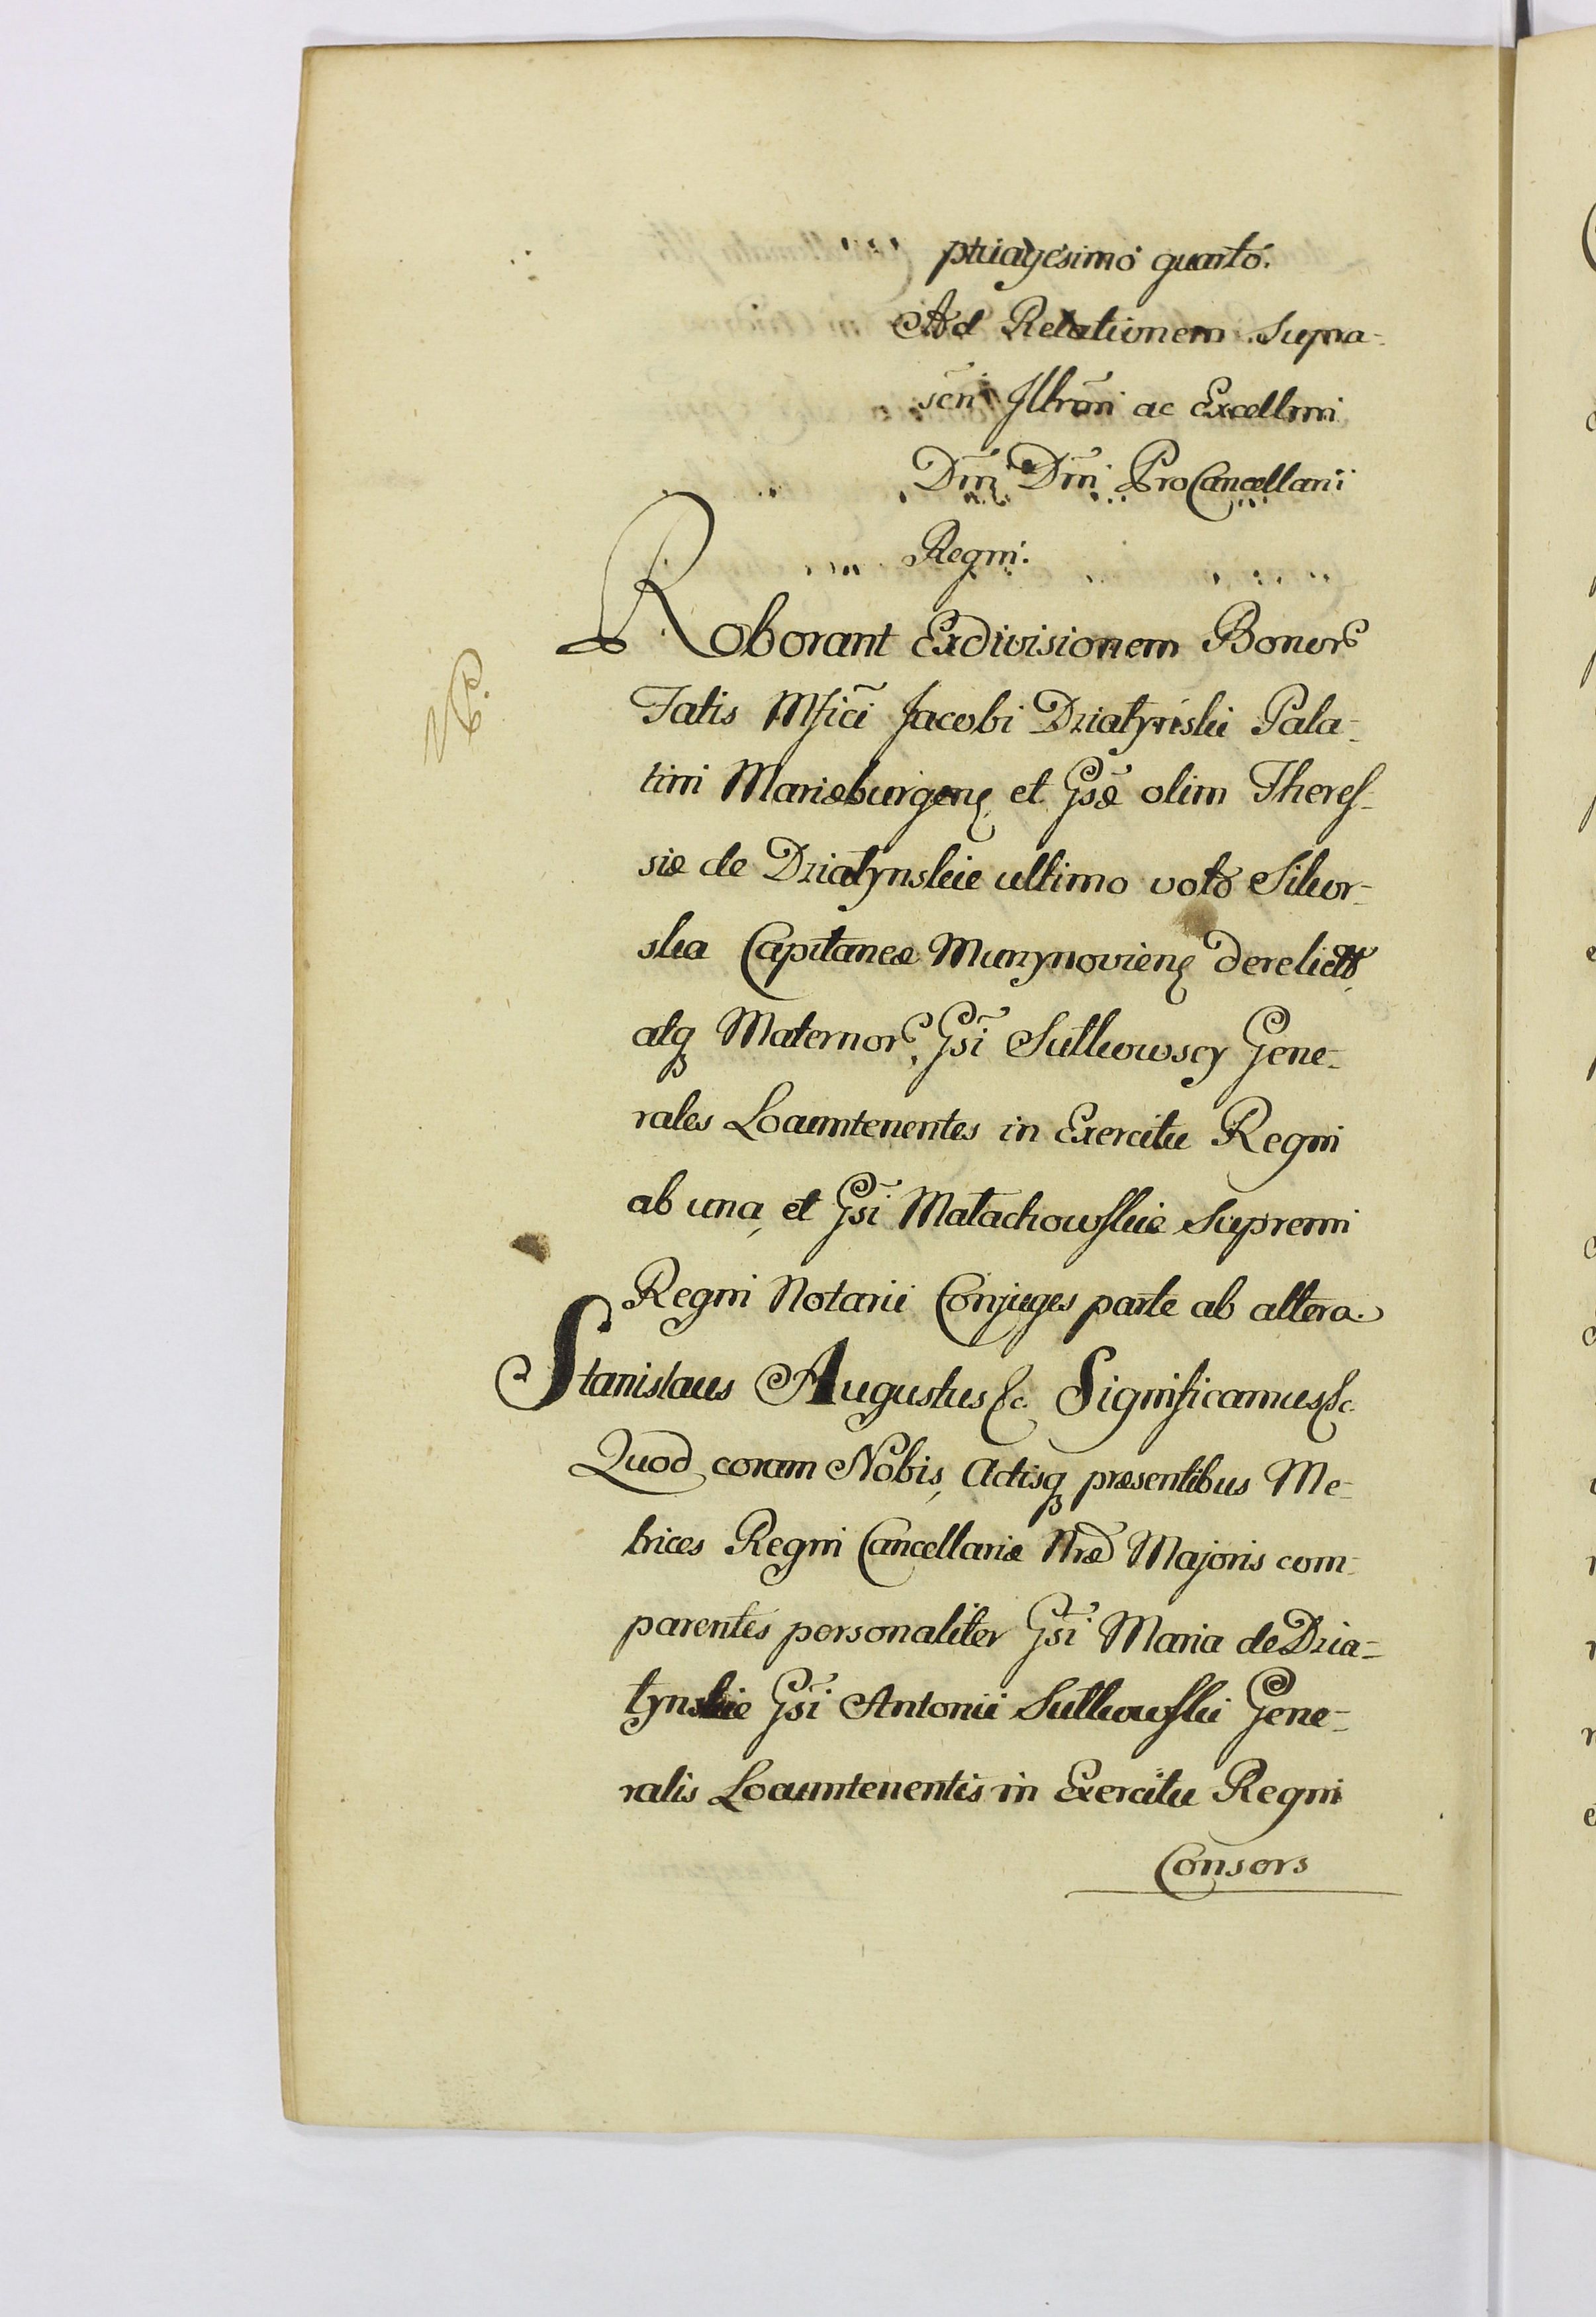 ptuagesimo quarto.
Ad Relationem Supra-
scri Illrmi ac Excellmi
Dni Dni ProCancellarii
Regni.
Roborant Exdivisionem Bonor
Fatis Mfici Jacobi Działyński Pala-
tini Mariæburgens et Gsæ olim Theres-
siæ de Działynskie ultimo voto Sikor-
ska Capitaneæ Murzynoviens derelicto
atq Maternor, Gsi Sułkowscy Gene-
rales Locumtenentes in Exercitu Regni
ab una, et Gsi Małachowskie Supremi
Regni Notarii Conjuges parte ab altera.
Stanislaus Augustus &c. Significamus &c.
Quod coram Nobis, Actisq præsentibus Me-
trices Regni Cancellariæ Nræ Majoris com-
parentes personaliter Gsi Maria de Dzia-
łynskie Gsi Antonii Sułkowski Gene-
ralis Locumtenentis in Exercitu Regni
Consors